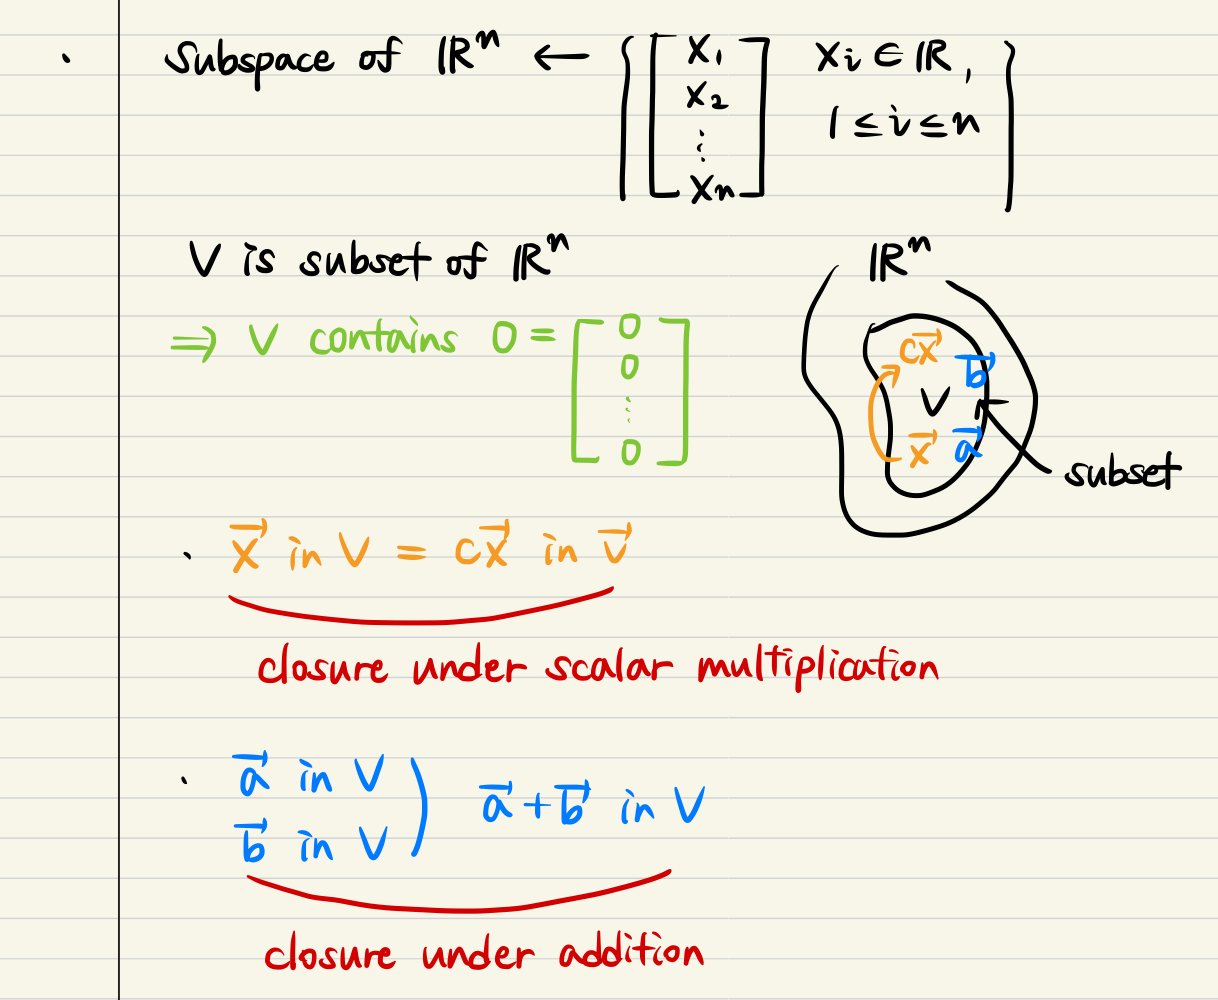 · Subspace of ℝⁿ ← { [ x₁ x₂ ⋮ xₙ ] xᵢ ∈ ℝ, 1 ≤ i ≤ n }
V is subset of ℝⁿ
⇒ V contains 0 = [ 0 0 ⋮ 0 ]
ℝⁿ
cx⃗ b⃗
V
x⃗ a⃗
subset
· x⃗ in V = cx⃗ in v⃗
closure under scalar multiplication
· a⃗ in V
b⃗ in V ) a⃗ + b⃗ in V
closure under addition